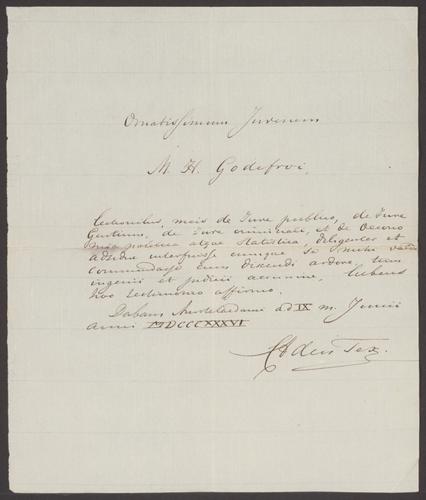 Ornatissimum Juvenem
M. H. Godefroi,
lectionibus meis de Jure publico, de Jure
Gentium, de Jure criminali, et de Oecono
mia politica atque Statistica, diligenter et
adsidue interfuisse eumque se mihi
commendasse cum discendi ardore, tum
ingenii et judicii acumine, lubens
hoc testimonio affirmo.
Dabam Amstelodami ad IX m. Junii
anni MDCCCXXXVI
CA den Tex.